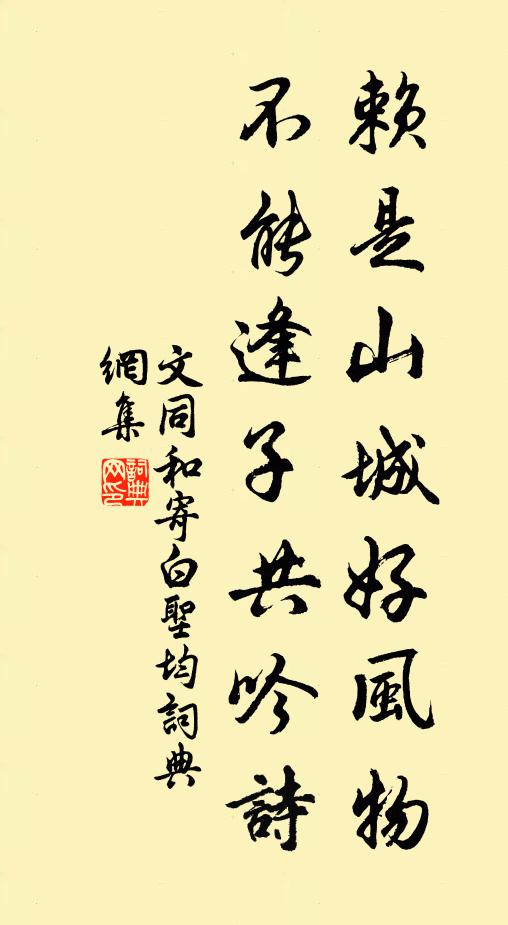 賴是山城好風物
不能逢子共吟詩
文同和寄白聖均詞典
網集
詞典
网印